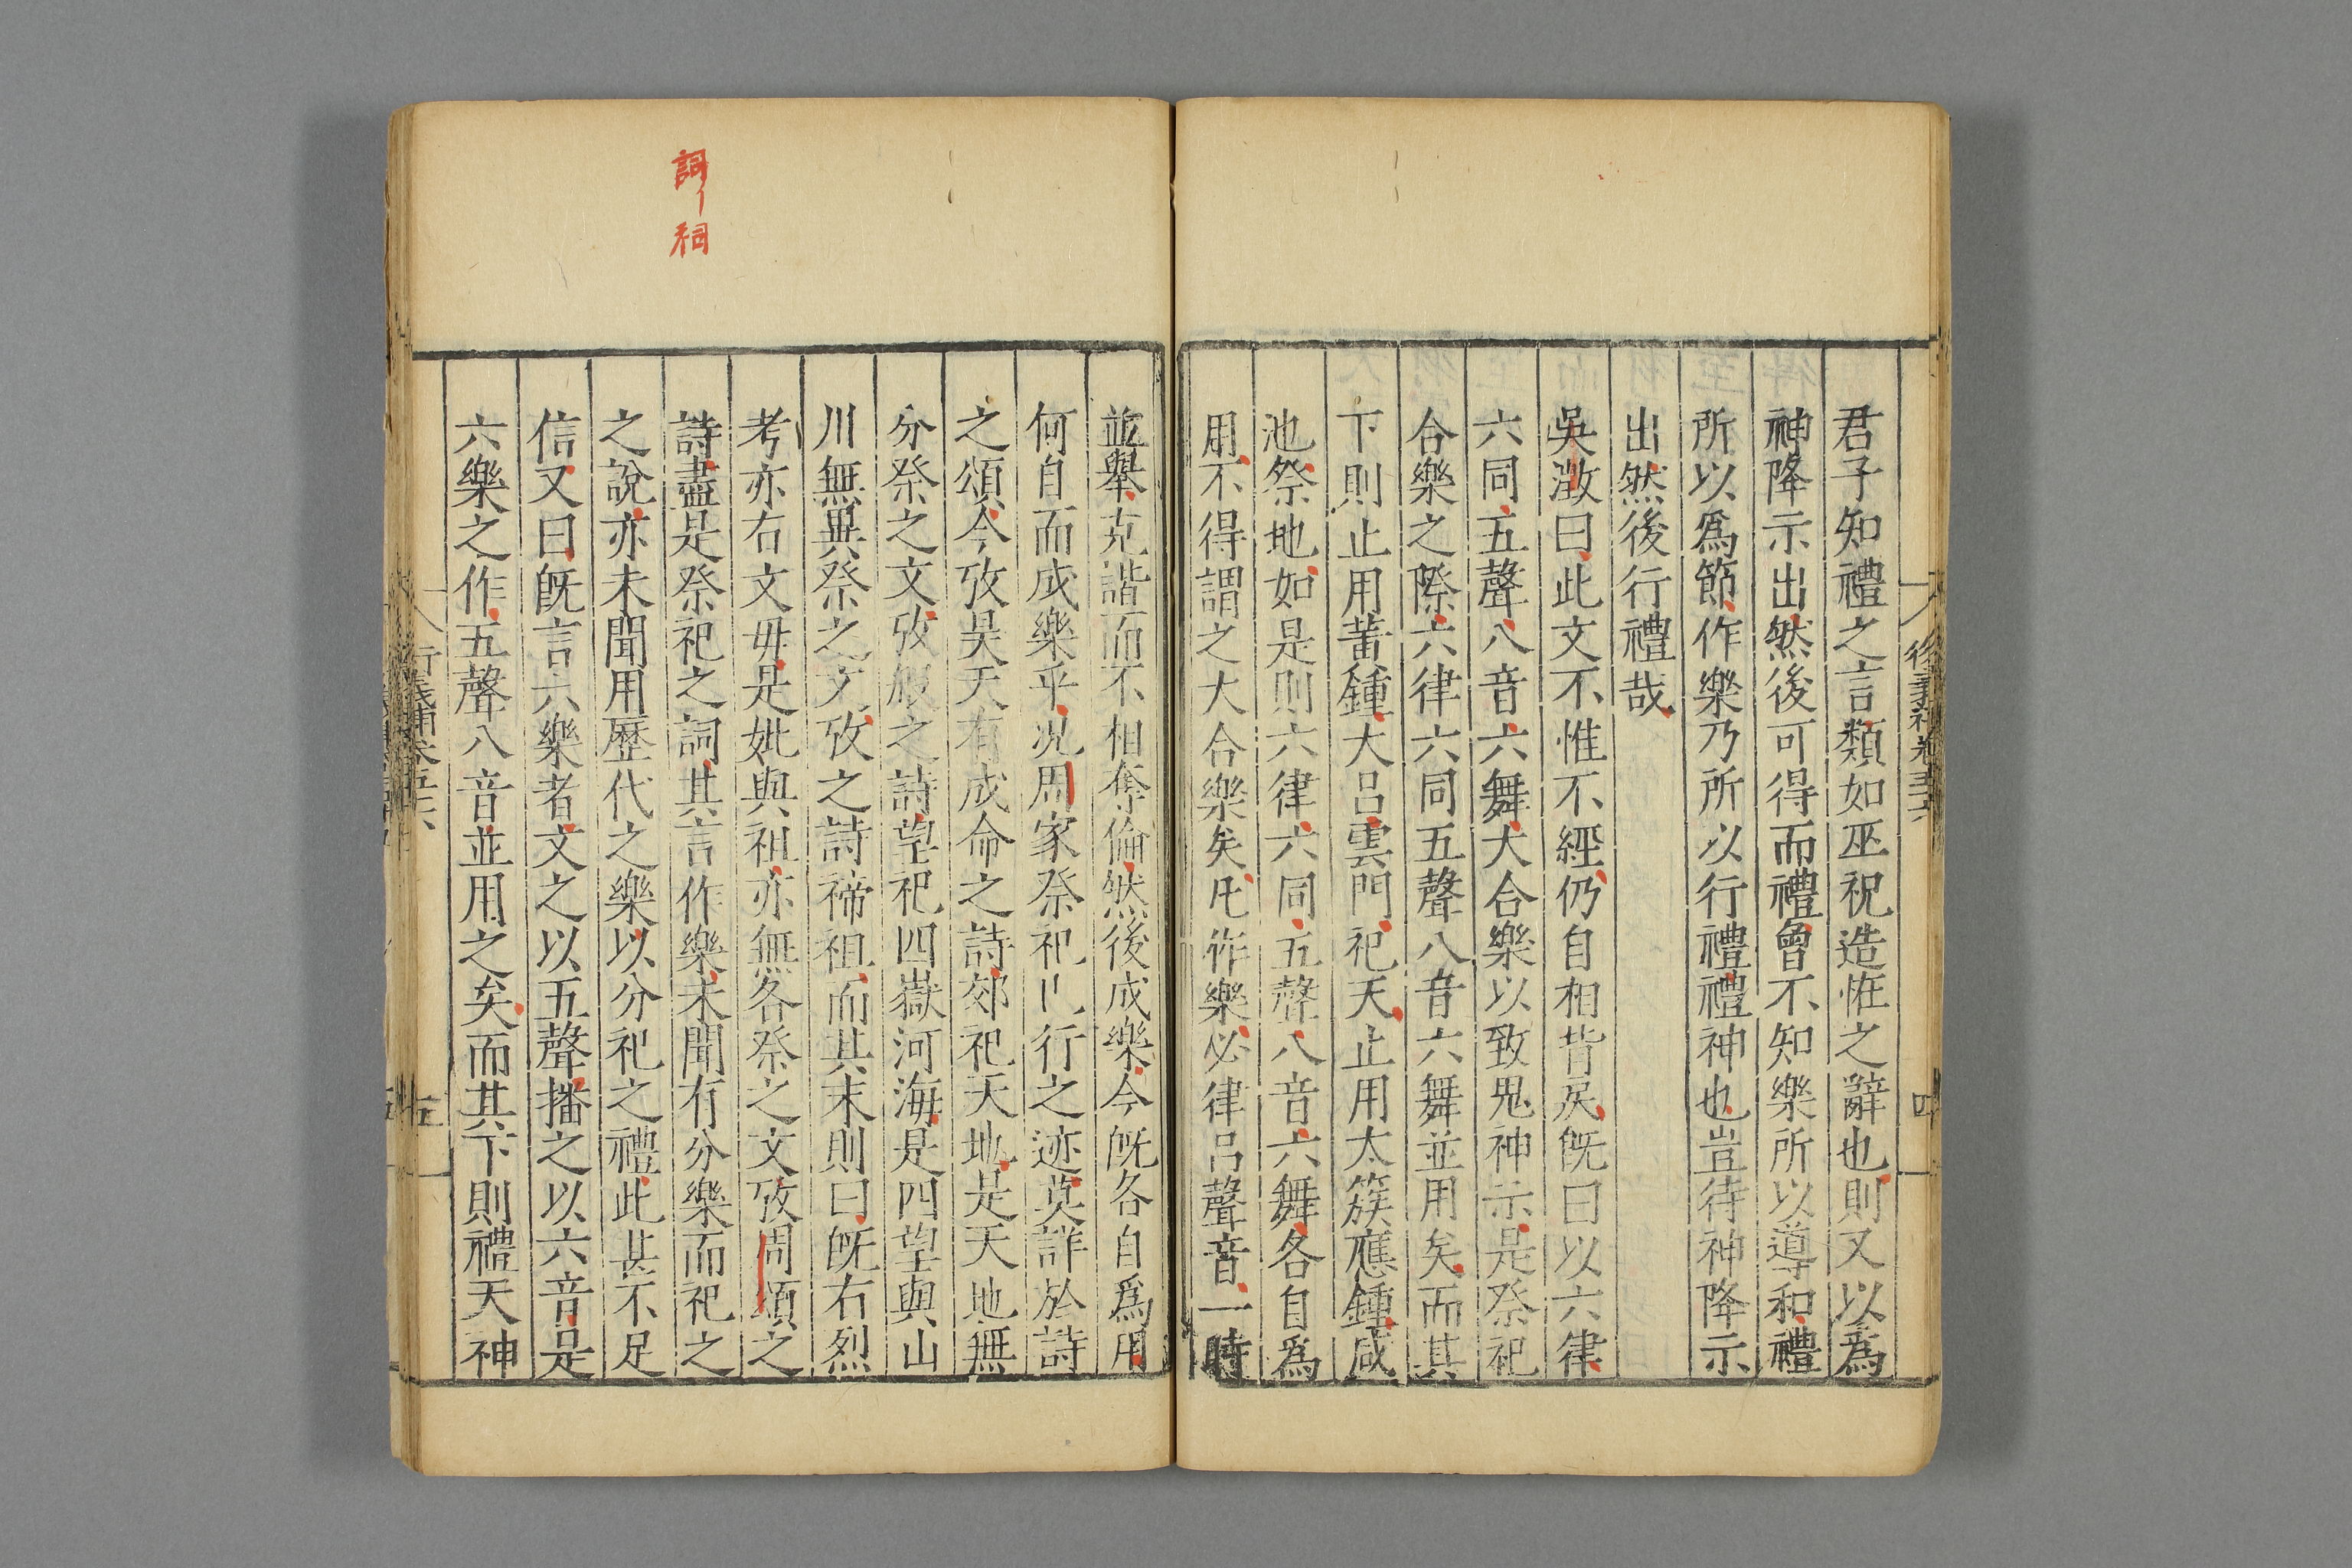 君子知禮之言類如巫祝造恠之辭也則又以爲
神降示出然後可得而禮曾不知樂所以導和禮
所以爲節作樂乃所以行禮禮神也豈待神降示
出然後行禮哉
吳澂曰此文不惟不經仍自相背戾旣曰以六律
六同五聲八音六舞大合樂以致鬼神示是祭祀
合樂之際六律六同五聲八音六舞並用矣而其
下則止用黃鍾大呂雲門祀天止用太簇應鍾咸
池祭地如是則六律六同五聲八音六舞各自爲
用不得謂之大合樂矣凡作樂必律呂聲音一時
並舉克諧而不相奪倫然後成樂今旣各自爲用
何自而成樂乎况周家祭祀行之迹莫詳於詩
之頌今攷昊天有成命之詩郊祀天地是天地無
分祭之文攷般之詩望祀四嶽河海是四望與山
川無異祭之文攷之詩禘祖而其末則曰旣右烈
考亦右文毋是妣與祖亦無各祭之文攷周頌之
詩盡是祭祀之詞其言作樂未聞有分樂而祀之
之說亦未聞用歷代之樂以分祀之禮此甚不足
信又曰旣言六樂者文之以五聲播之以六音是
六樂之作五聲八音並用之矣而其下則禮天神
五
四
詞
祠